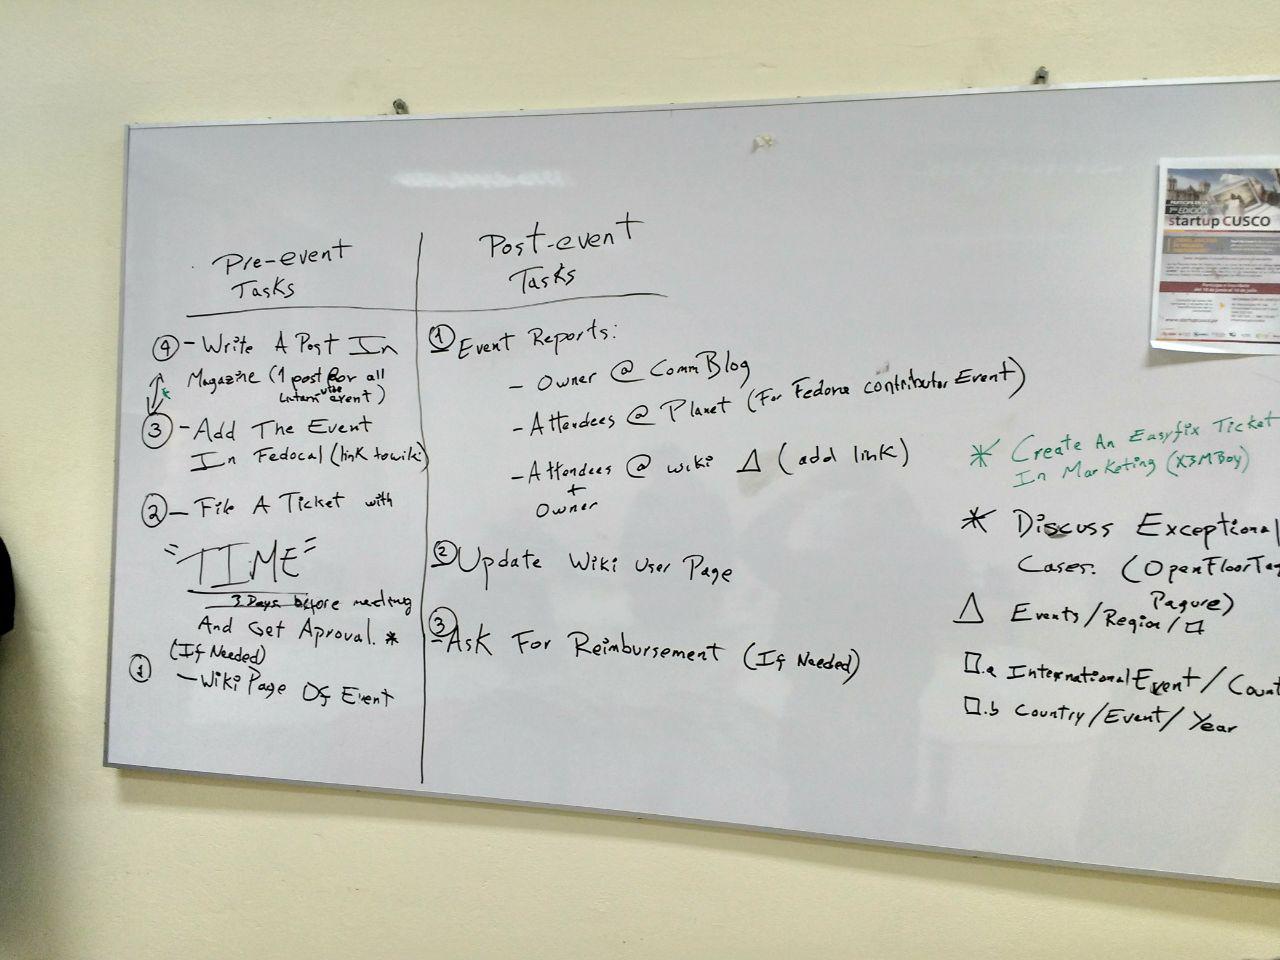 Pre-event
Tasks
④ - Write A Post In
Magazine (1 post for all
the
Latam event)
③ - Add The Event
In Fedocal (link to wiki)
② - File A Ticket with
"TIME"
3 Days before meeting
And Get Aproval. *
(If Needed)
① - Wiki Page Of Event
Post-event
Tasks
① Event Reports:
- Owner @ CommBlog
- Attendees @ Planet (For Fedora contributor Event)
- Attendees @ wiki △ (add link)
+
Owner
② Update Wiki User Page
③ Ask For Reimbursement (If Needed)
* Create An Easyfix Ticket
In Marketing (X3MBoy)
* Discuss Exceptional
Cases. (OpenFloorTag
Pagure)
△ Events/Region/□
□.a International Event/Count
□.b Country/Event/Year
PARTICIPA EN LA
1ra EDICIÓN
startup CUSCO
www.startupcusco.pe